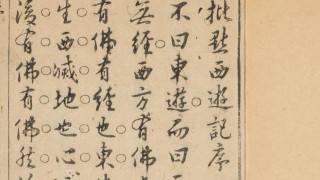 批點西遊記序
不曰東遊而曰西
無經西方有佛
有佛有經也東
生西滅地也心
後有佛有佛然